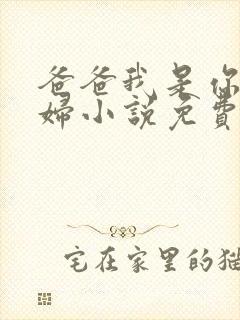 爸爸我是你
婦小說免費
宅在家里的猫